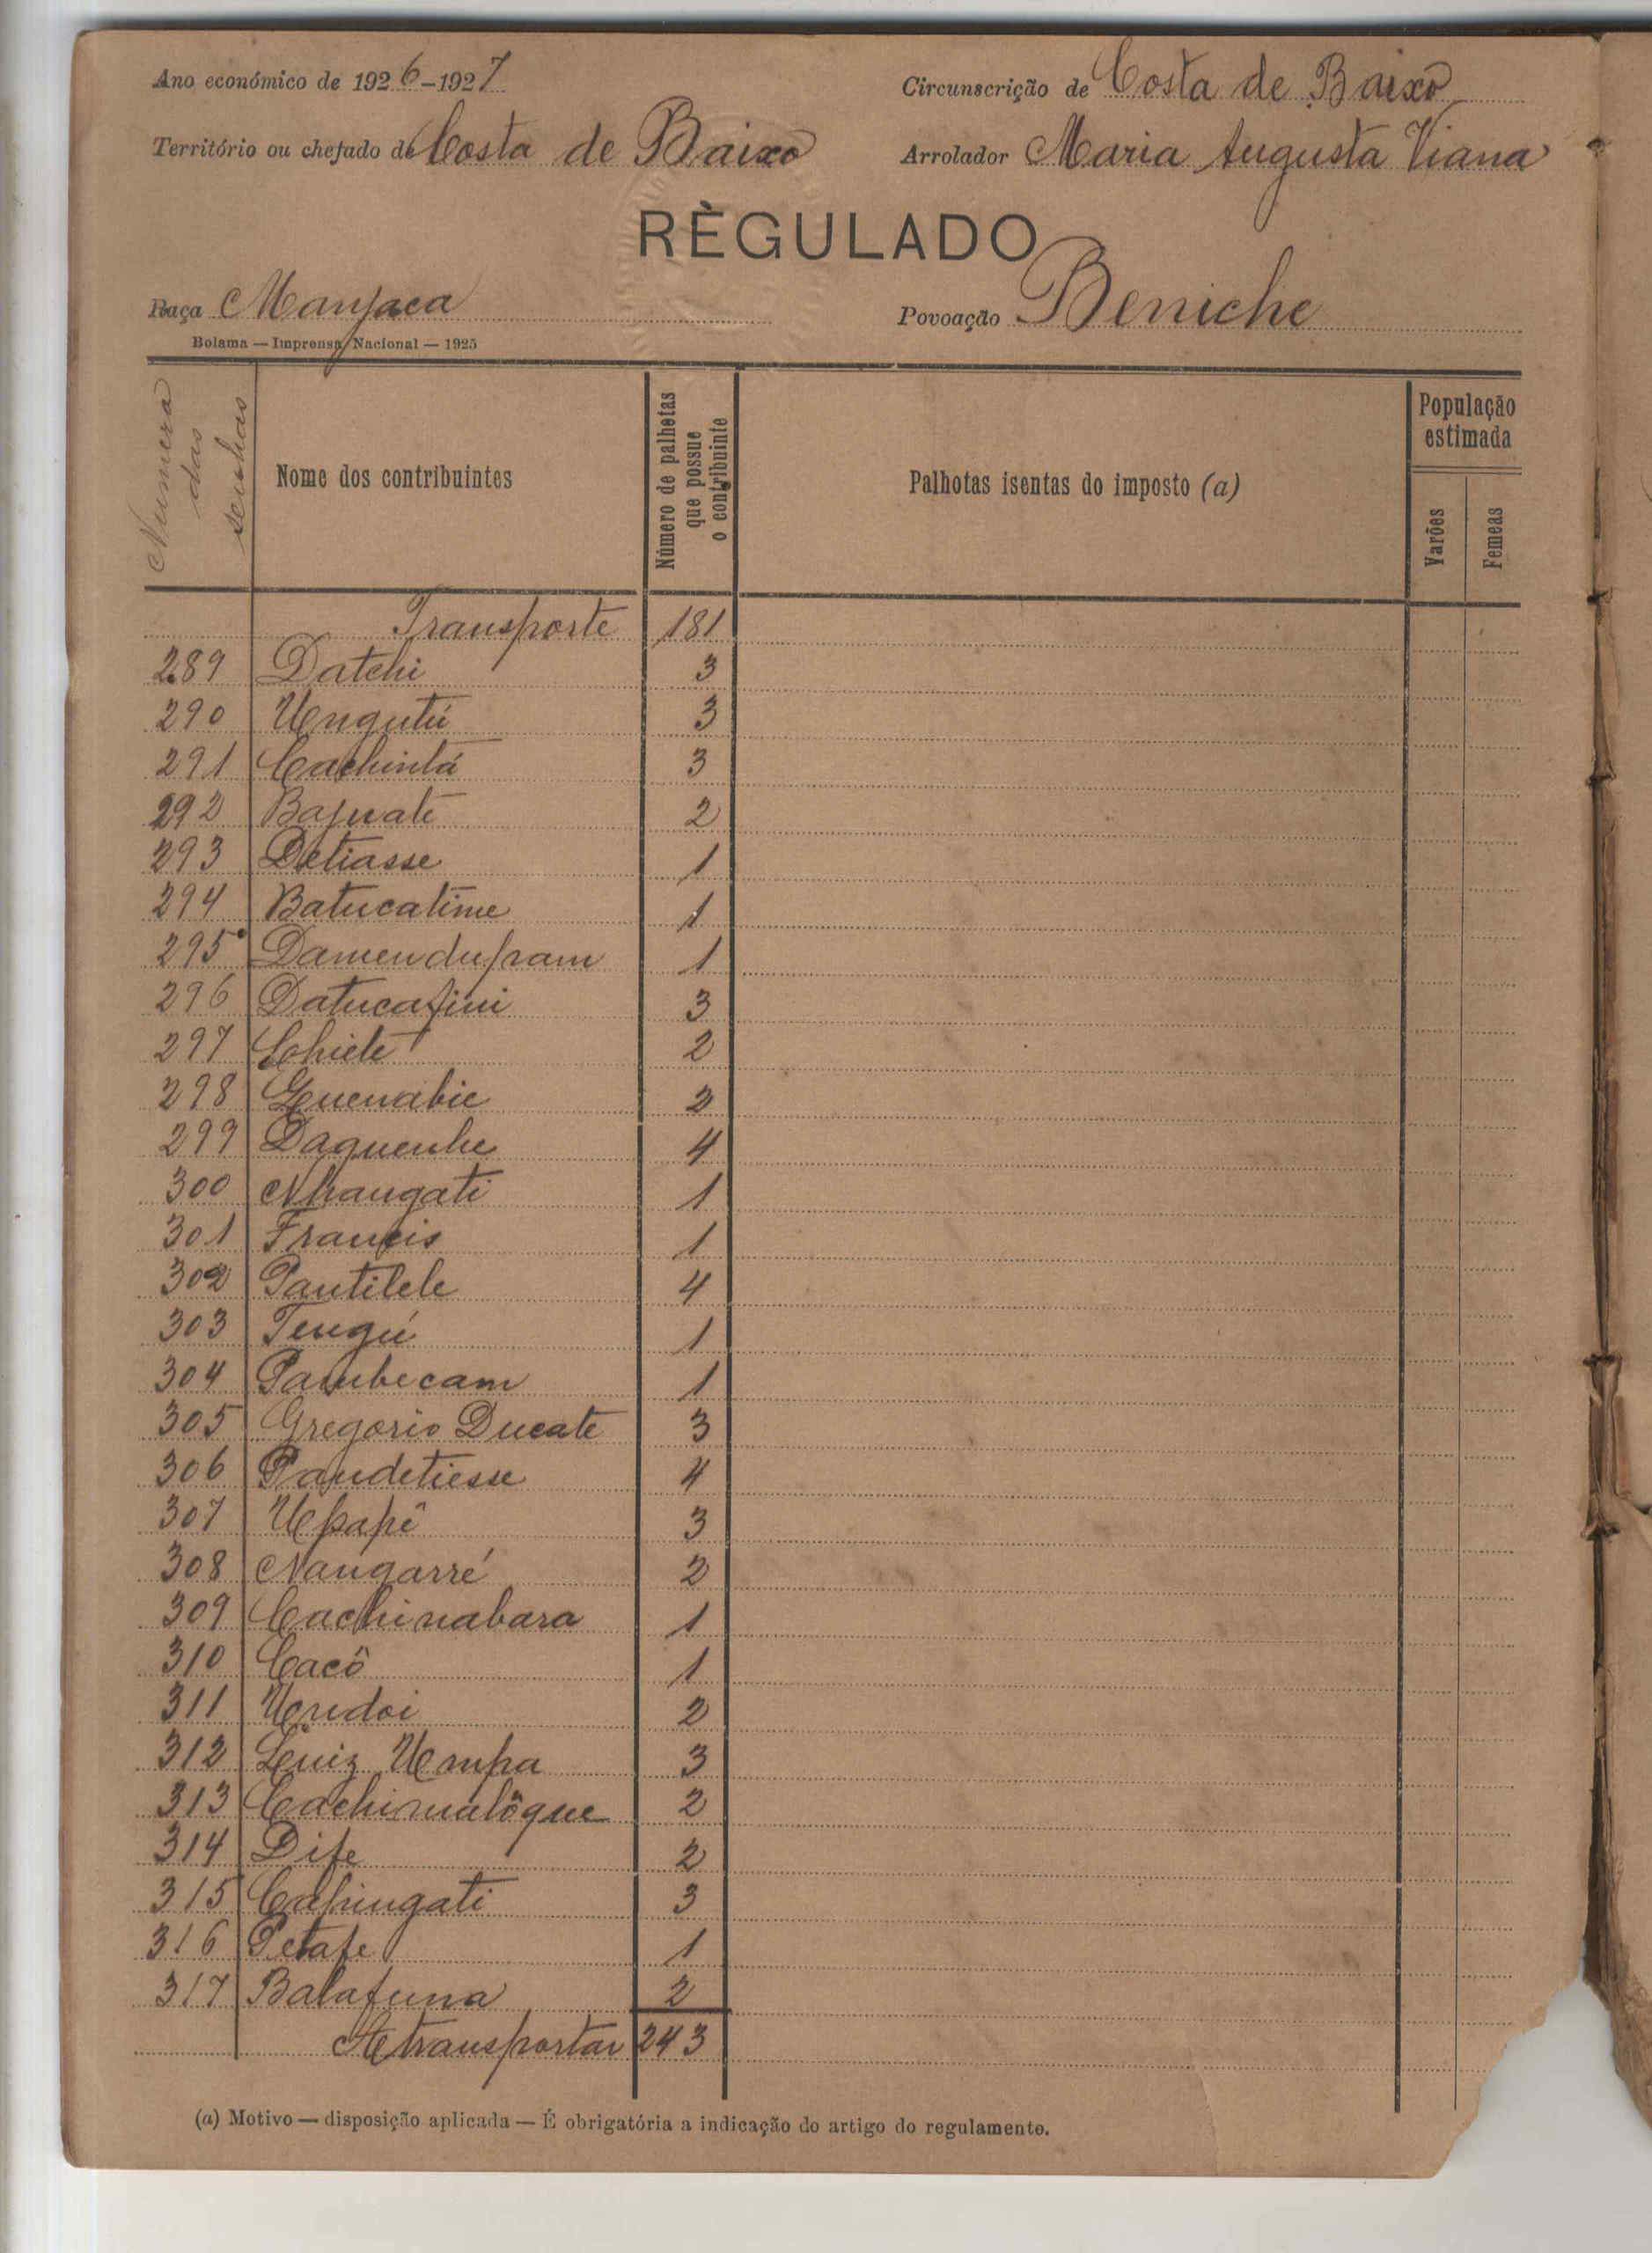 Ano económico de 1926-1927
Circunscrição de Costa de Baixo
Território ou chefado de Costa de Baixo
Arrolador Maria Augusta Viana
RÈGULADO
Raça Manjaca
Povoação Beniche
Bolama — Imprensa Nacional — 1925
Numero das senhas
Nome dos contribuintes
Número de palhotas que possue o contribuinte
Palhotas isentas do imposto (a)
População estimada
Varões
Femeas
Transporte 181
289 Datchi 3
290 Ungutú 3
291 Cachintá 3
292 Bajuate 2
293 Detiasse 1
294 Batucatime 1
295 Damendupam 1
296 Datucafini 3
297 Chiete 2
298 Guenabie 2
299 Daquenhe 4
300 Nhangati 1
301 Francis 1
302 Pantilele 4
303 Tengú 1
304 Pambecam 1
305 Gregorio Ducate 3
306 Paudetiesse 4
307 Upapê 3
308 Nangarré 2
309 Cachinabara 1
310 Cacô 1
311 Undoi 2
312 Luiz Umpa 3
313 Cachinalôque 2
314 Dife 2
315 Caphingati 3
316 Petafe 1
317 Balafuna 2
A transportar 243
(a) Motivo — disposição aplicada — É obrigatória a indicação do artigo do regulamento.